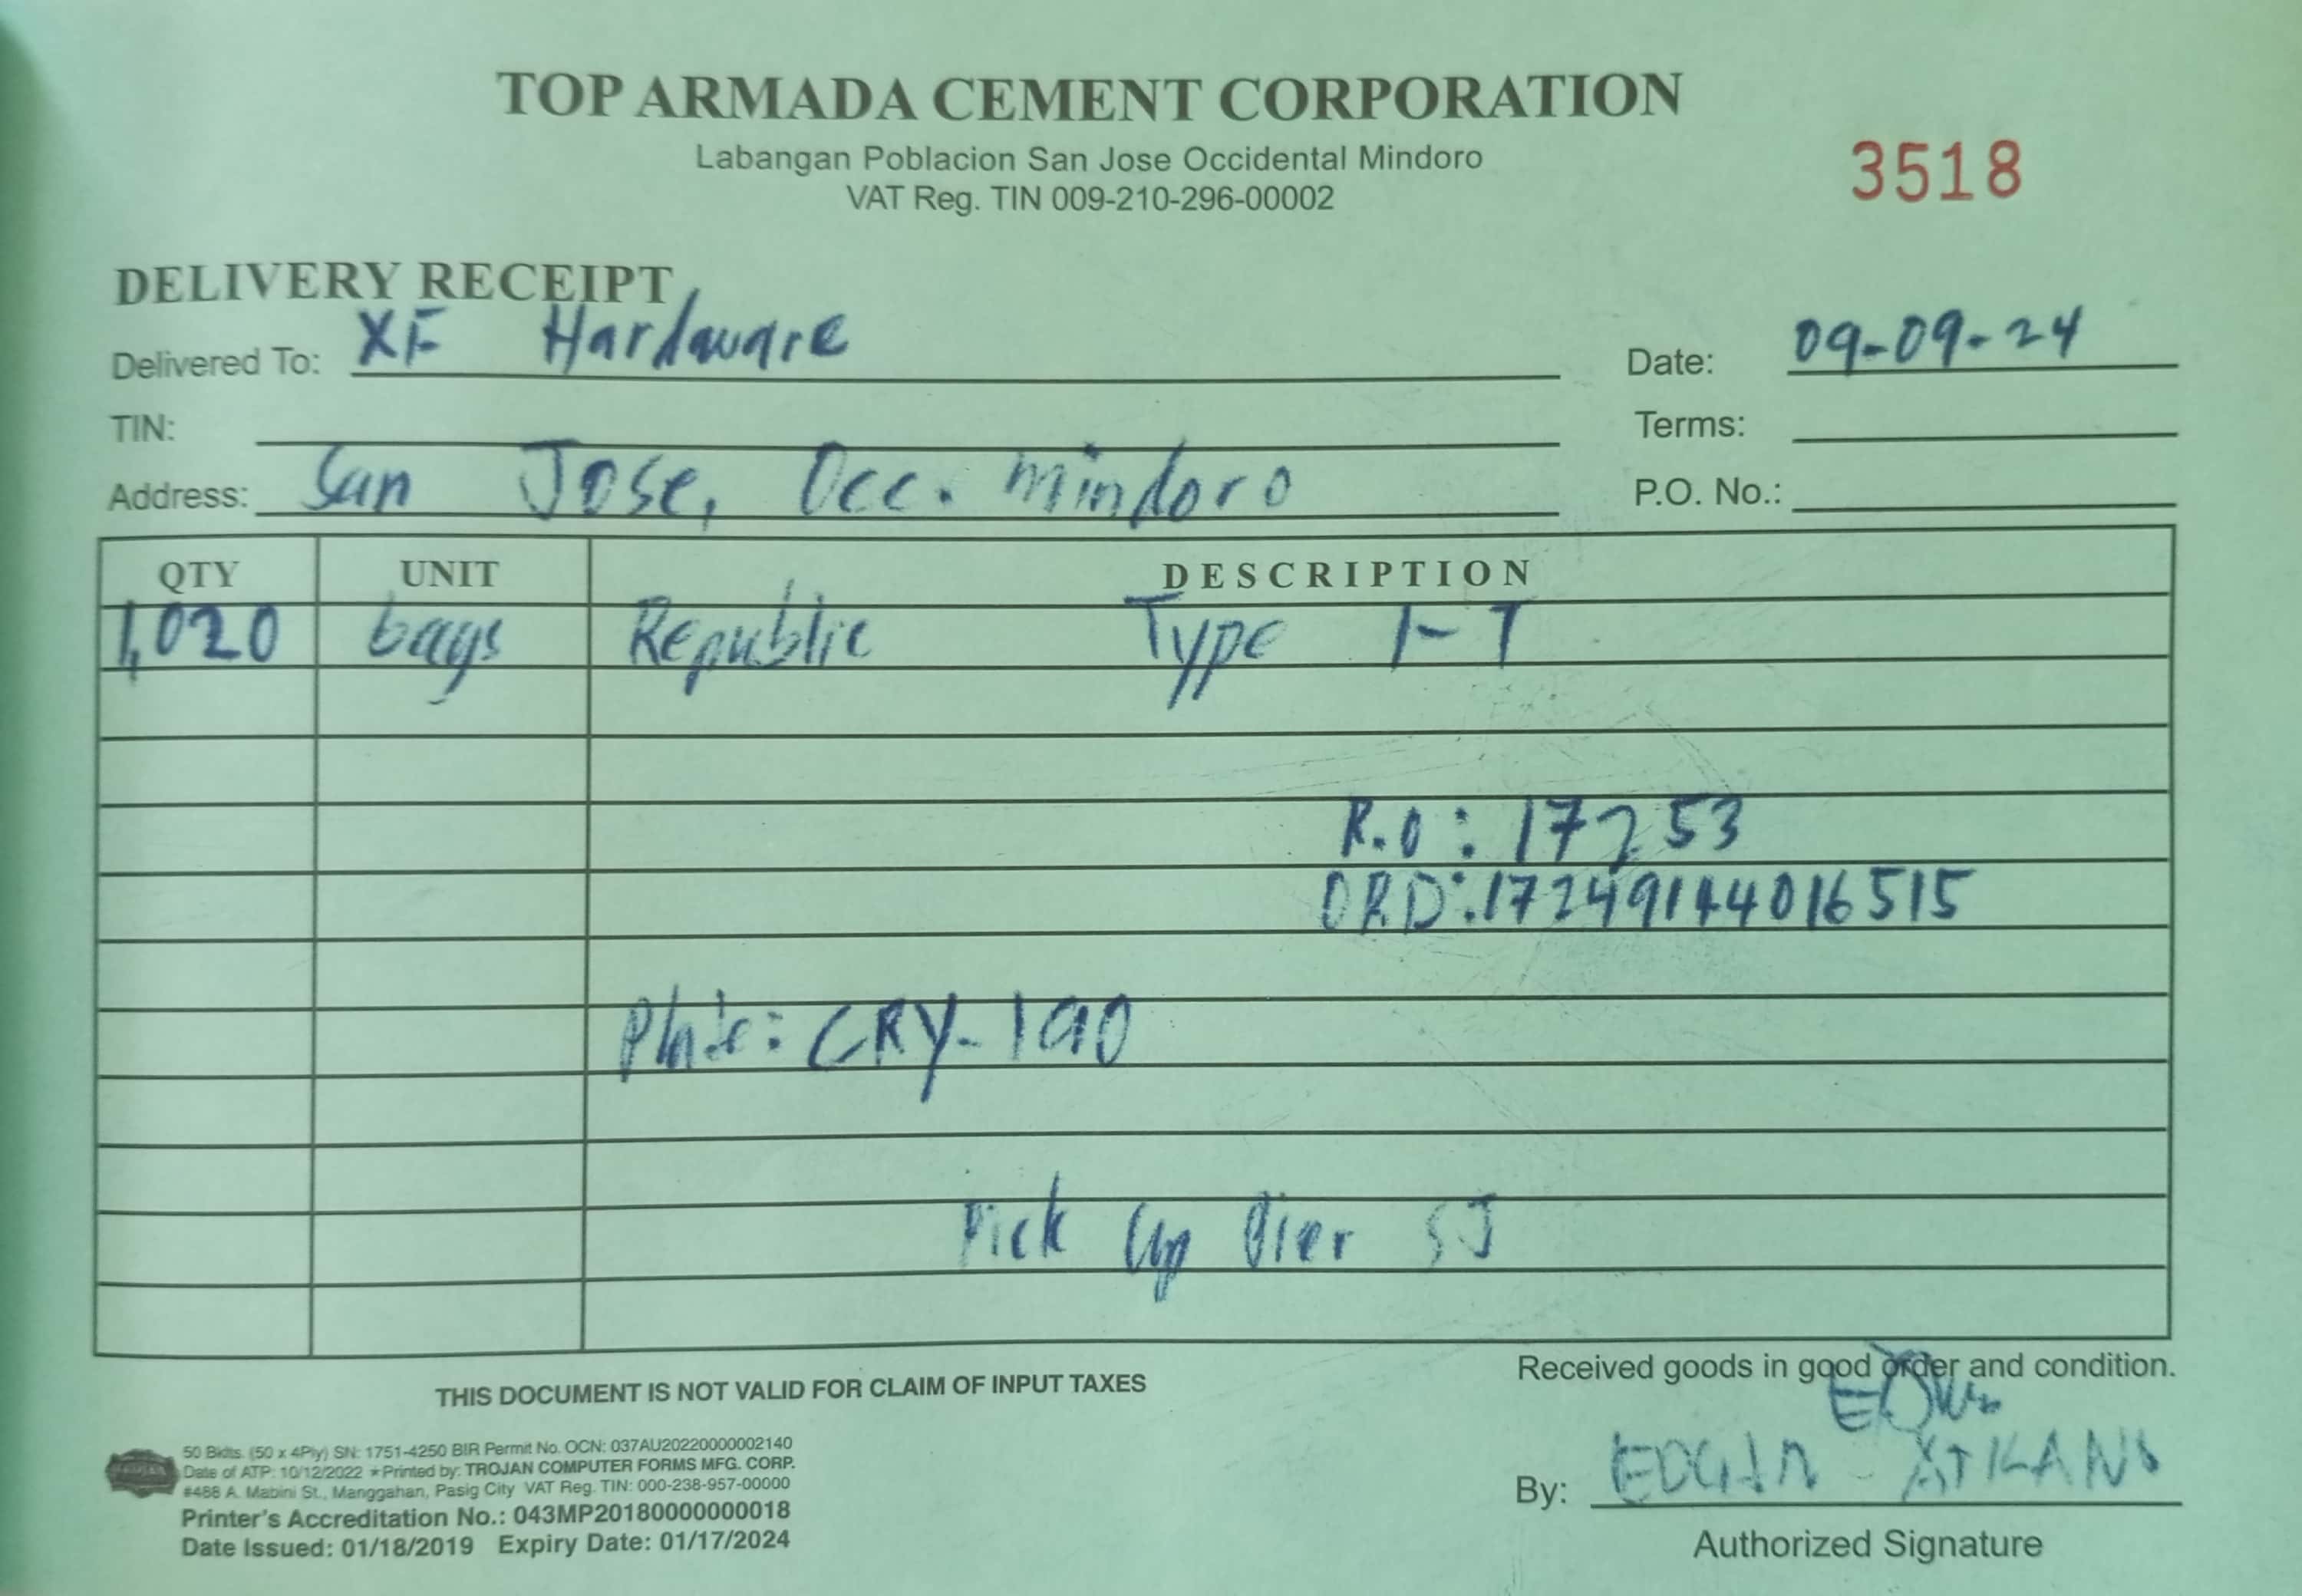 TOP ARMADA CEMENT CORPORATION
Labangan Poblacion San Jose Occidental Mindoro
VAT Reg. TIN 009-210-296-00002
3518
DELIVERY RECEIPT
Delivered To: XF Hardware
Date: 09-09-24
TIN:
Terms:
Address: San Jose, Occ. Mindoro
P.O. No.:
QTY UNIT DESCRIPTION
1,020 bags Republic Type 1-T
R.O: 17253
ORD: 17249144016515
Plate: CRY-190
Pick Up Pier SJ
THIS DOCUMENT IS NOT VALID FOR CLAIM OF INPUT TAXES
Received goods in good order and condition.
50 Bklts. (50 x 4Ply) SN: 1751-4250 BIR Permit No. OCN: 037AU20220000002140
Date of ATP: 10/12/2022 ★Printed by: TROJAN COMPUTER FORMS MFG. CORP.
#488 A. Mabini St., Manggahan, Pasig City VAT Reg. TIN: 000-238-957-00000
Printer's Accreditation No.: 043MP20180000000018
Date Issued: 01/18/2019 Expiry Date: 01/17/2024
By:
Authorized Signature